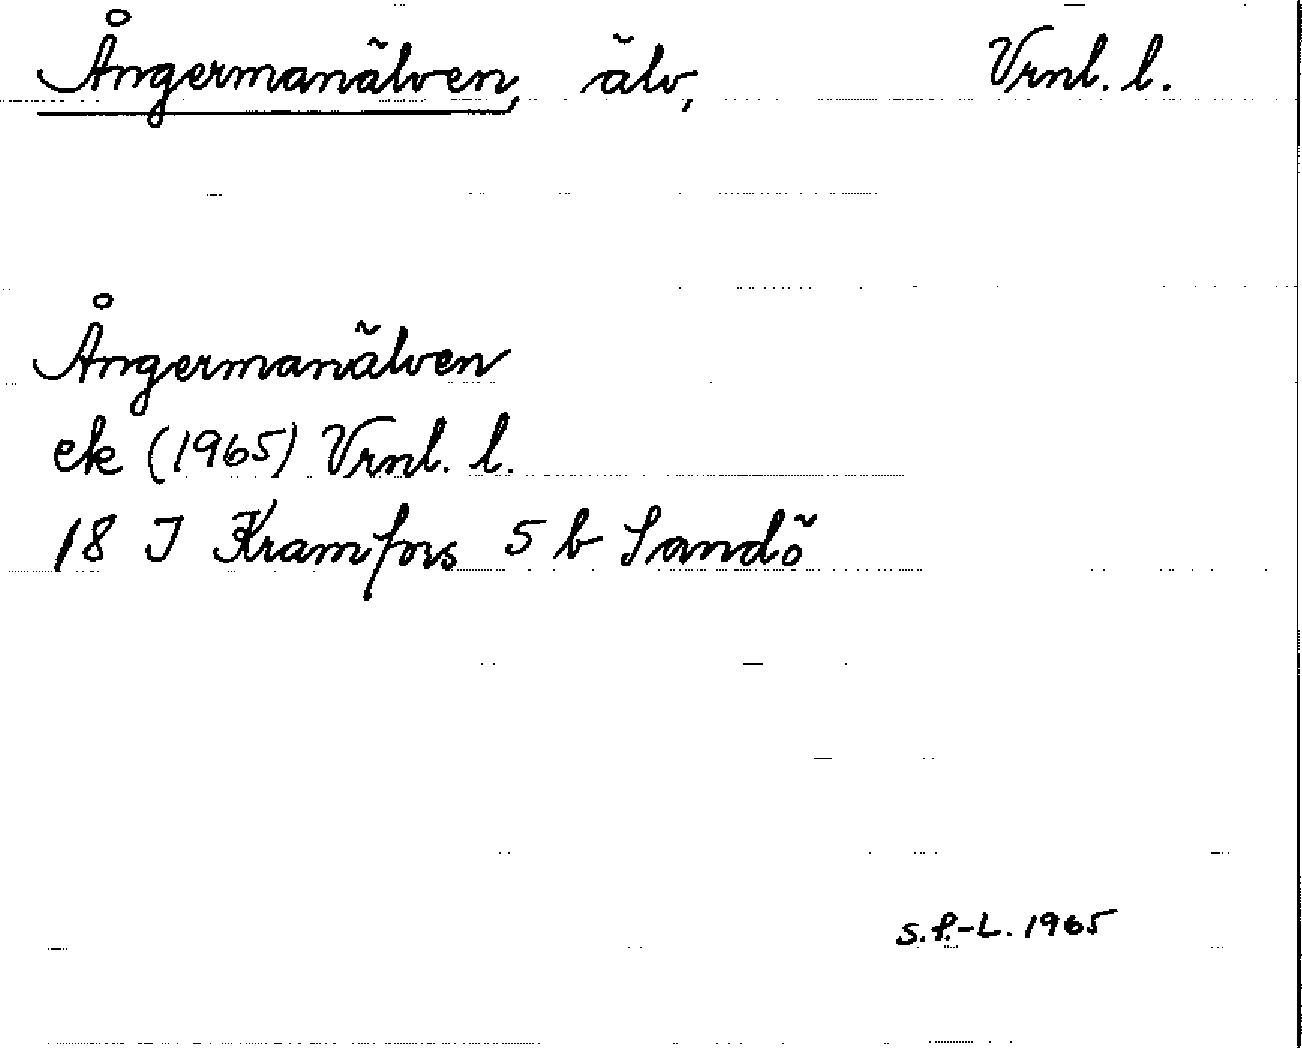 Ångermanälven, älv, Vrnl. l.
Ångermanälven
ek (1965) Vrnl. l.
18 I Kramfors 5 b Sandö
S.P.-L. 1965